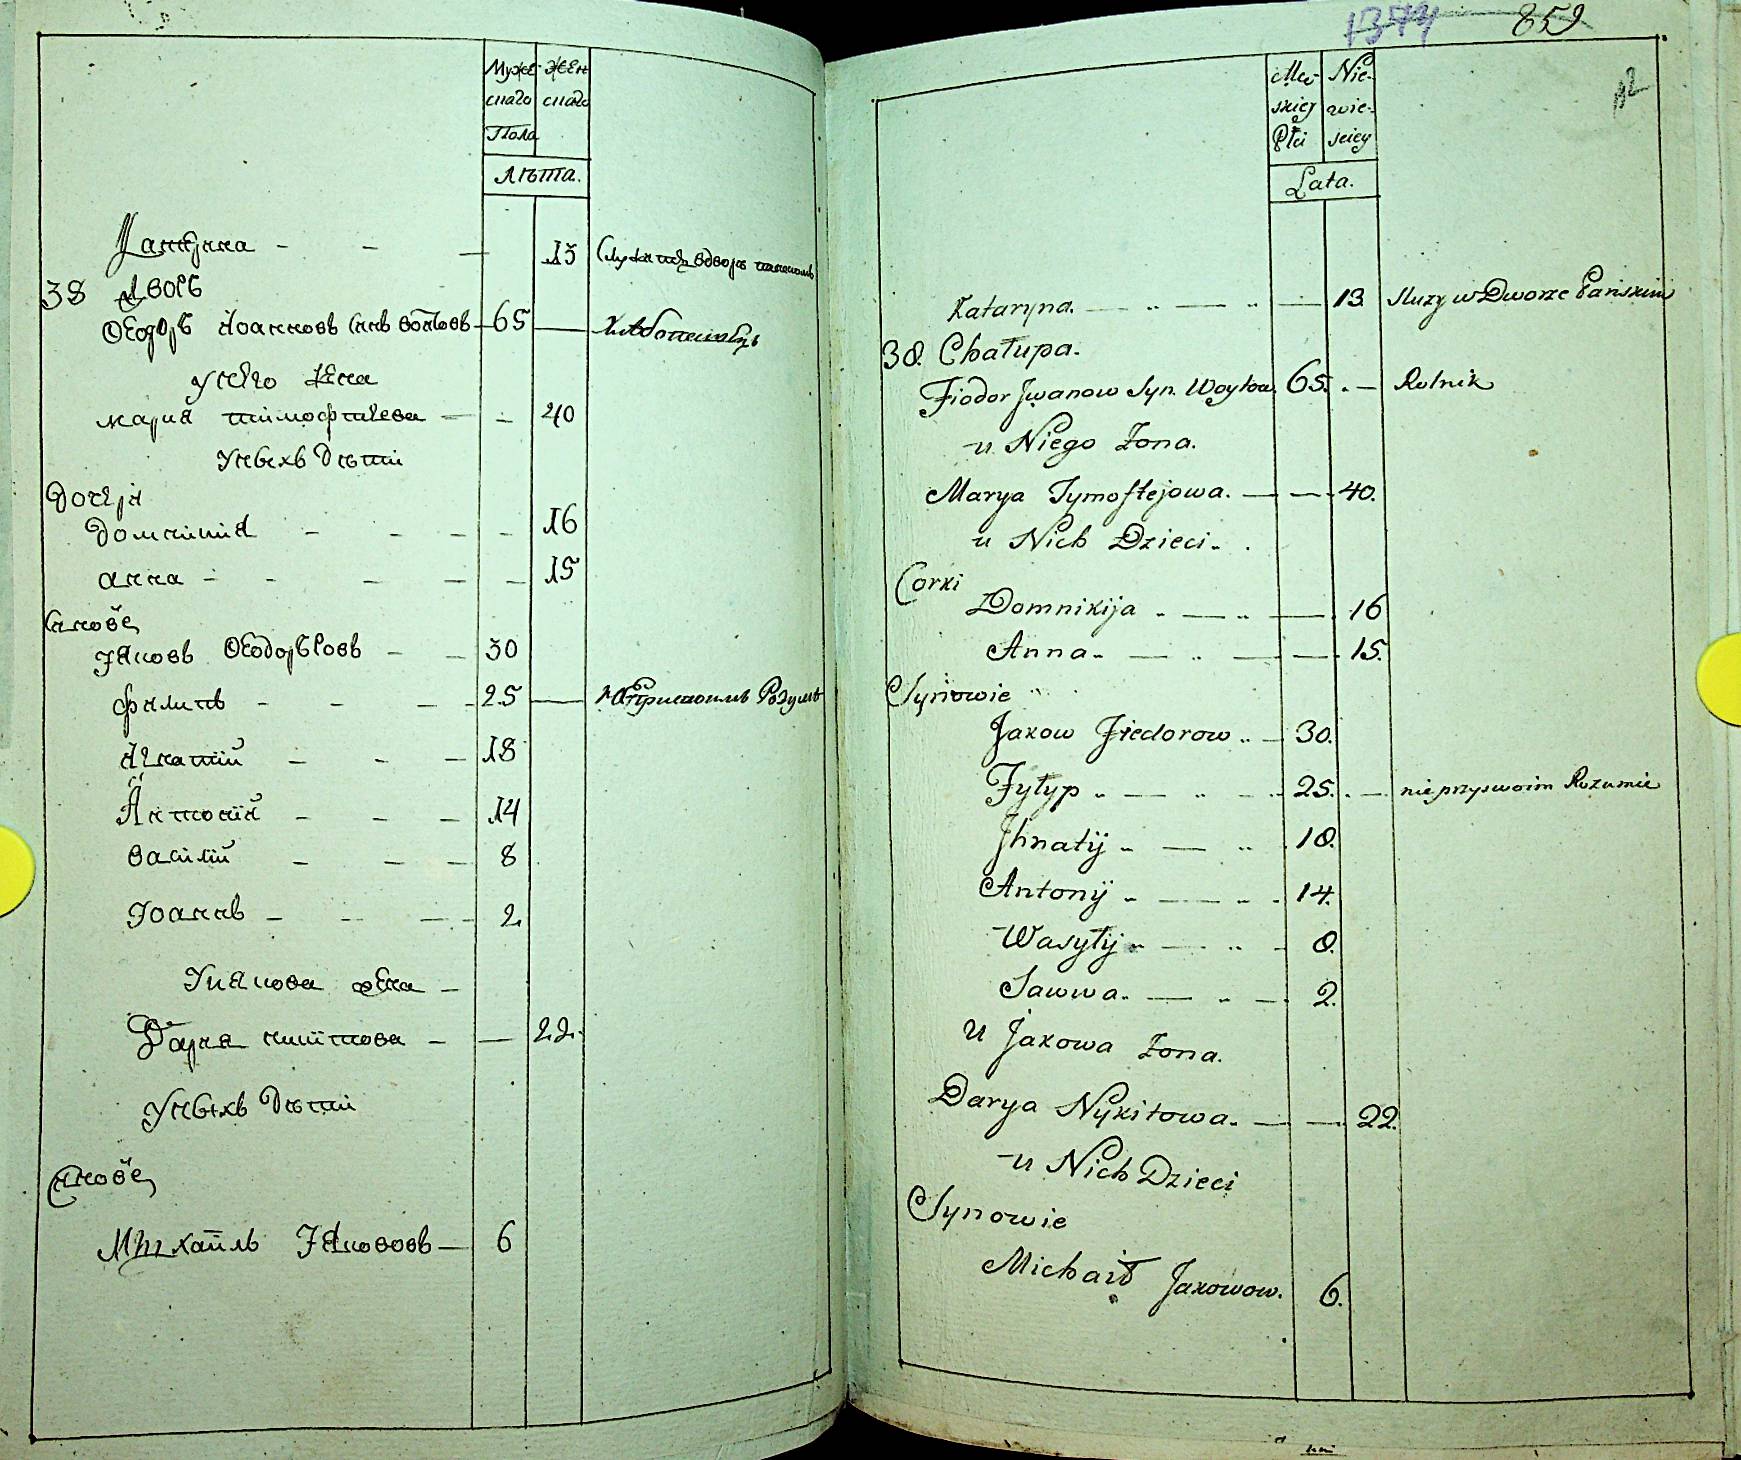 Муже
скаго
Пола
Жен
скаго
Лѣта.
Катерина - - - 13
38 Дворъ
Ѳеодоръ Іоанновъ Снъ Войтовъ 65 Хлѣбопашецъ
У него Жена
Мариа Тимофтѣева - - 40
У нихъ Дѣти
Дочери
Домникиа - - - - 16
Анна - - - - - 15
Снове
Іаковъ Ѳеодоровъ - - 30
Филипъ - - - 25
Игнатий - - - 18
Антоний - - - 14
Василий - - - 8
Іоаннъ - - - 2
У Іакова Жена -
Дариа Никитова - - 22.
У нихъ Дѣти
Снове
Михаилъ Іакововъ - 6
1374 859
12
Mę-
skiey
Płci
Nie-
wie-
sciey
Lata.
Kataryna. - 13 służy w Dworze Pańskim
38. Chałupa.
Fiodor Jwanow Syn. Woytow. 65. Rolnik
u Niego Żona.
Marya Tymoftejowa. - 40.
u Nich Dzieci.
Corki
Domnikija - 16
Anna - 15.
Synowie
Jakow Fiedorow - 30.
Fyłyp - 25. nie przyswoim Rozumie
Jhnatij - 18.
Antonij - 14.
Wasyłij - 8.
Sawwa. - 2.
u Jakowa Żona.
Darya Nykitowa. - 22.
u Nich Dzieci
Synowie
Michaił Jakowow. 6.